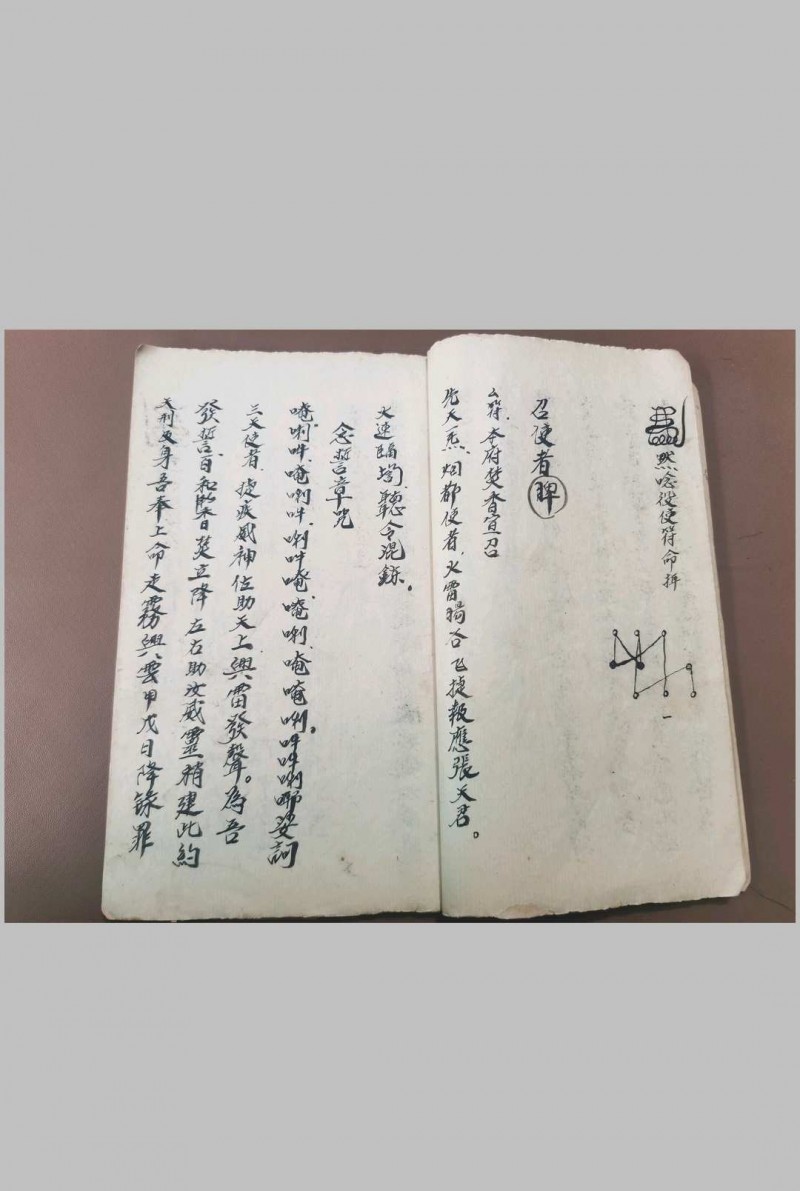 然唸役使符命拜
一
召使者
符本府焚香宣召
先天炁烟都使者火雷陽谷飞捷報應張天君。
火速臨壇聽令混鍊。
念誓章咒
唵唎吽唵唎吽唎吽唵唵唎唵唵唎。吽吽唎耶娑訶
三天使者捷疾威神佐助天上興雷發聲。為吾
發誓日和焚立降左右助汝威靈稍違此約
天刑及身吾奉上命走霧興雲甲戊日降錄罪